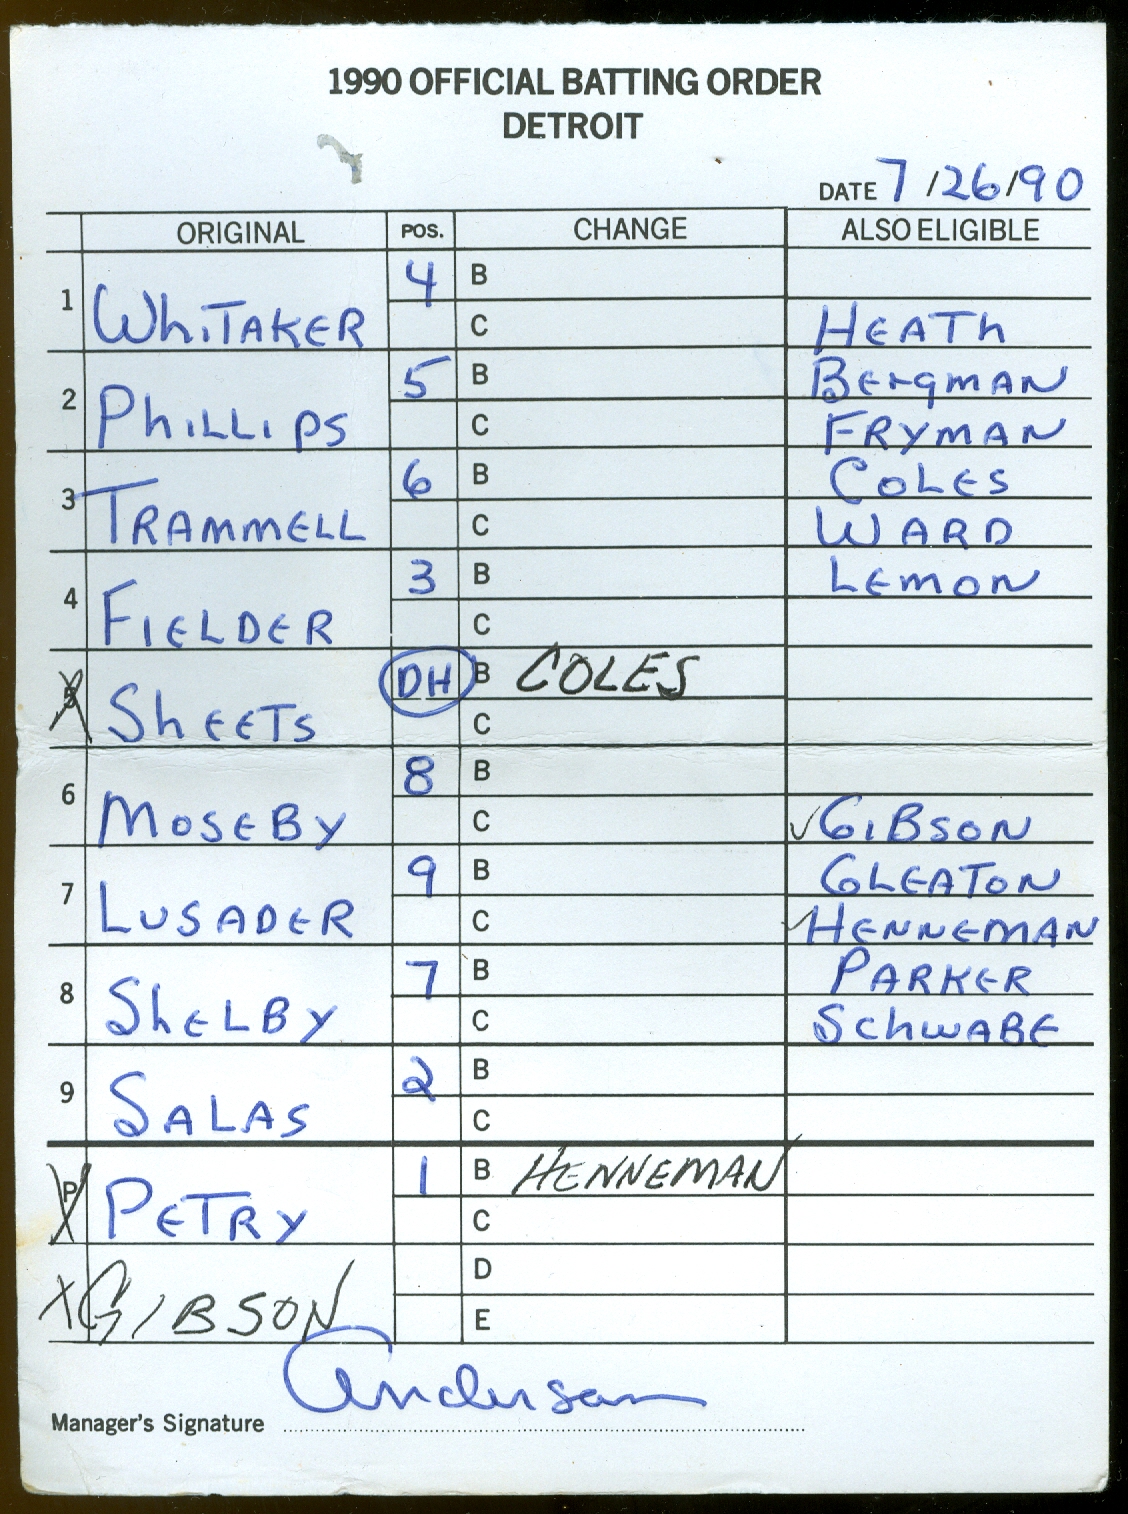 1990 OFFICIAL BATTING ORDER
DETROIT
DATE 7/26/90
ORIGINAL POS. CHANGE ALSO ELIGIBLE
1 WhiTAKER 4 B
C HEATh
2 PhiLLiPS 5 B BErgmAN
C FRYMAN
3 TRAMMELL 6 B COLES
C WARD
4 FIELDER 3 B LEMON
C
5 ShEETS DH B COLES
C
6 MOSEBY 8 B
C ✓GIBSON
7 LUSADER 9 B GLEATON
C ✓HENNEMAN
8 ShELBY 7 B PARKER
C SChWABE
9 SALAS 2 B
C
P PETRY 1 B HENNEMAN
C
X GIBSON D
E
Anderson
Manager's Signature